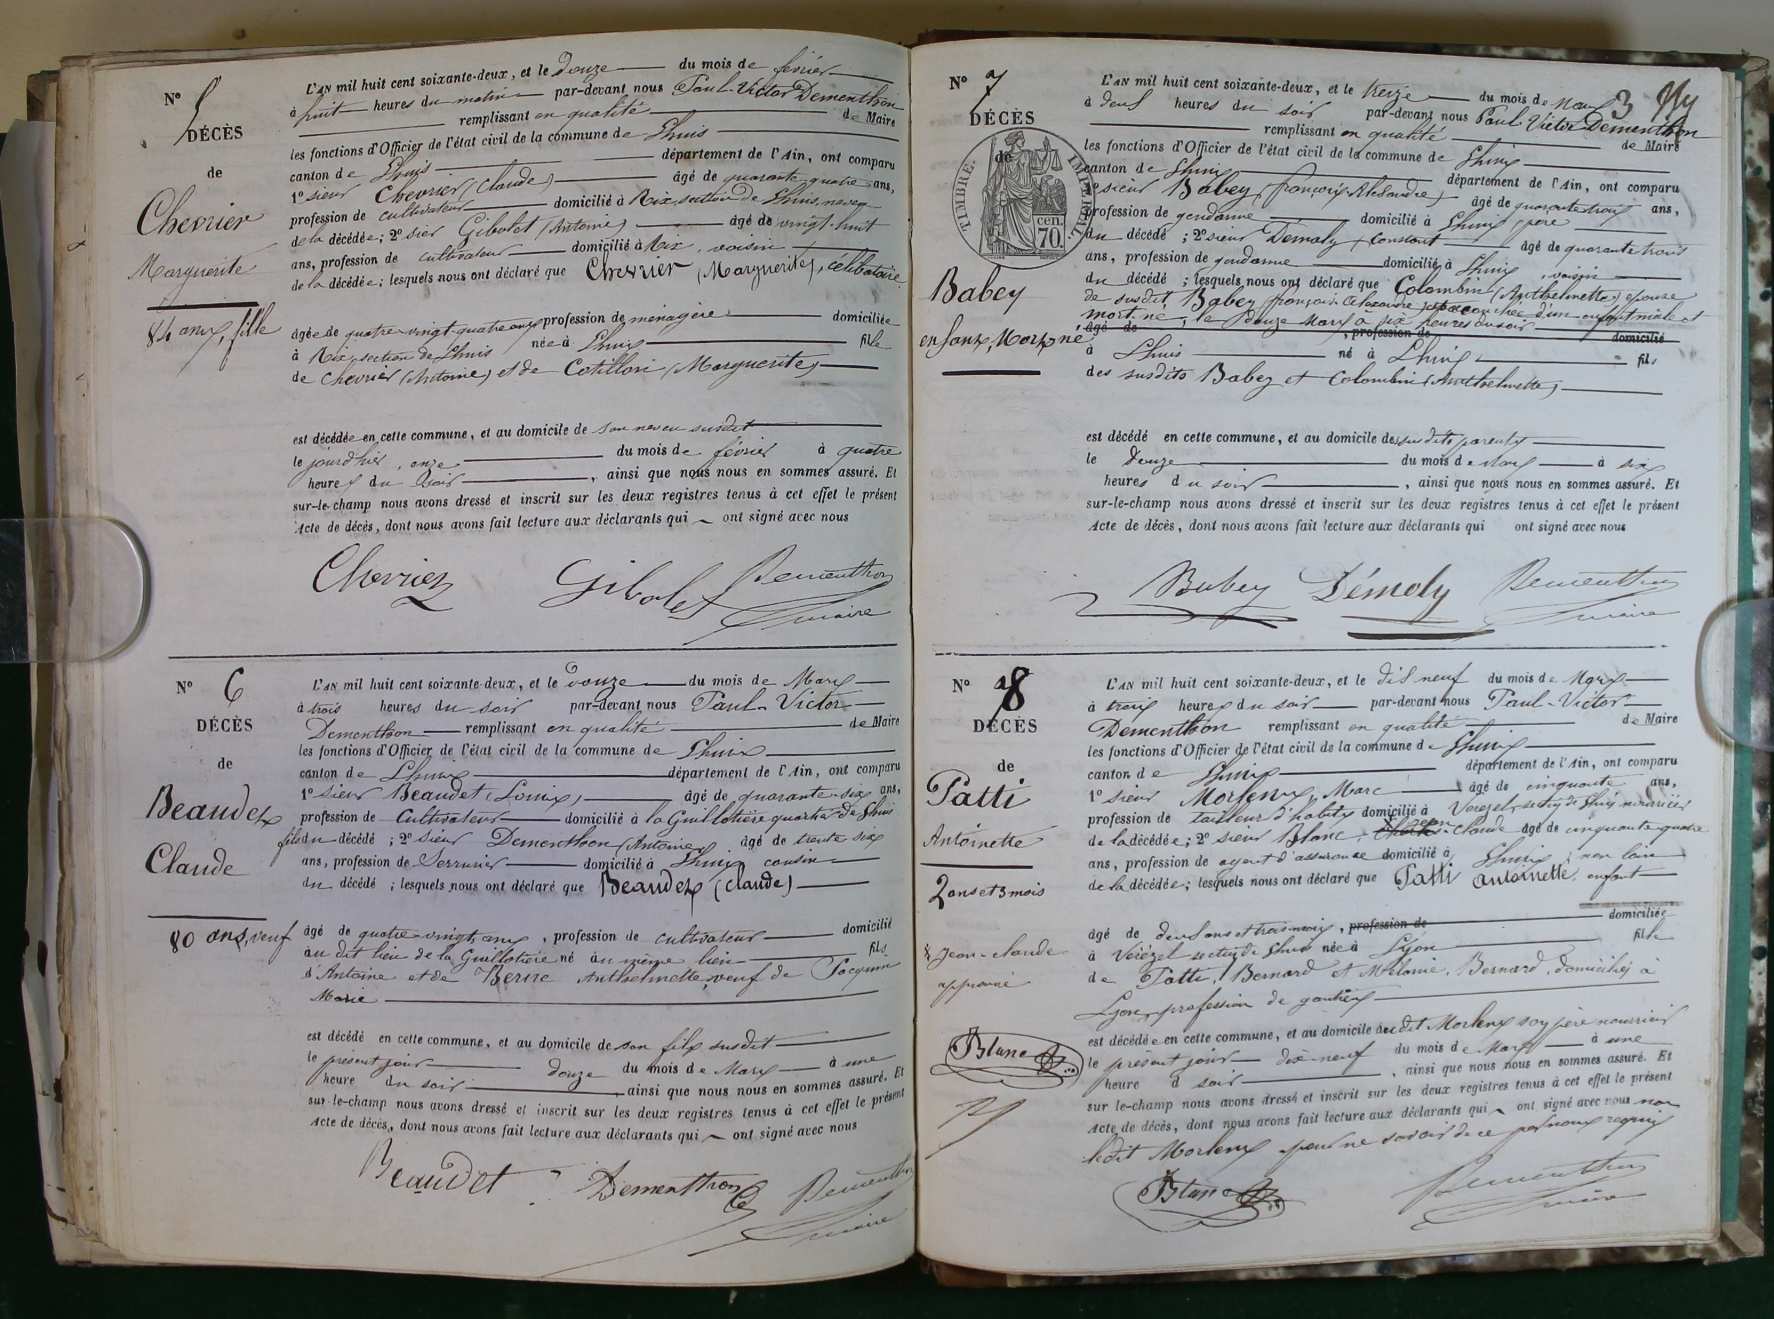 N° 5
DÉCÈS
de
Chevrier
Marguerite
84 ans, fille
L'AN mil huit cent soixante-deux, et le douze du mois de février
à huit heures du matin par-devant nous Paul-Victor Dementhon
remplissant en qualité de Maire
les fonctions d'Officier de l'état civil de la commune de Lhuis
canton de Lhuis département de l'Ain, ont comparu
1° sieur Chevrier (Claude) âgé de quarante quatre ans,
profession de cultivateur domicilié à Rix section de Lhuis, neveu
de la décédée; 2° sieur Gibolet (Antoine) âgé de vingt-huit
ans, profession de cultivateur domicilié à Rix, voisin
de la décédée; lesquels nous ont déclaré que Chevrier (Marguerite), célibataire
âgée de quatre-vingt quatre ans profession de ménagère domiciliée
à Rix, section de Lhuis née à Lhuis fille
de Chevrier (Antoine) et de Cotillon (Marguerite)
est décédée en cette commune, et au domicile de son neveu susdit
le jourd'hier, onze du mois de février à quatre
heures du soir, ainsi que nous nous en sommes assuré. Et
sur-le-champ nous avons dressé et inscrit sur les deux registres tenus à cet effet le présent
Acte de décès, dont nous avons fait lecture aux déclarants qui ont signé avec nous
Chevrier Gibolet Dementhon
maire
N° 6
DÉCÈS
de
Beaudet
Claude
80 ans, veuf
L'AN mil huit cent soixante-deux, et le douze du mois de Mars
à trois heures du soir par-devant nous Paul-Victor
Dementhon remplissant en qualité de Maire
les fonctions d'Officier de l'état civil de la commune de Lhuis
canton de Lhuis département de l'Ain, ont comparu
1° sieur Beaudet, Louis, âgé de quarante-six ans,
profession de Cultivateur domicilié à la Guillotière quartier de Lhuis
fils du décédé; 2° sieur Dementhon (Antoine) âgé de trente six
ans, profession de Serrurier domicilié à Lhuis cousin
du décédé; lesquels nous ont déclaré que Beaudet (Claude)
âgé de quatre-vingts ans, profession de cultivateur domicilié
au dit lieu de la Guillotière né au même lieu fils
d'Antoine et de Berne Anthelmette, veuf de
Marie
est décédé en cette commune, et au domicile de son fils susdit
le présent jour douze du mois de Mars à une
heure du soir, ainsi que nous nous en sommes assuré. Et
sur-le-champ nous avons dressé et inscrit sur les deux registres tenus à cet effet le présent
Acte de décès, dont nous avons fait lecture aux déclarants qui ont signé avec nous
Beaudet Dementhon Dementhon
maire
3
N° 7
DÉCÈS
de
TIMBRE IMPÉRIAL.
70 cen.
Babey
enfant, Mort, né
L'AN mil huit cent soixante-deux, et le treize du mois de Mars
à deux heures du soir par-devant nous Paul Victor Dementhon
remplissant en qualité de Maire
les fonctions d'Officier de l'état civil de la commune de Lhuis
canton de Lhuis département de l'Ain, ont comparu
1° sieur Babey, (françois Alexandre) âgé de quarante trois ans,
profession de gendarme domicilié à Lhuis père
du décédé; 2° sieur Démoly, Constant âgé de quarante trois
ans, profession de gendarme domicilié à Lhuis, voisin
du décédé; lesquels nous ont déclaré que Colombin (Anthelmette) épouse
de susdit Babey françois Alexandre est accouchée d'un enfant mâle et
mort-né, le douze Mars à six heures du soir
âgé de, profession de domicilié
à Lhuis né à Lhuis fils
des susdits Babey et Colombin (Anthelmette)
est décédé en cette commune, et au domicile des susdits parents
le Douze du mois de Mars à six
heures du soir, ainsi que nous nous en sommes assuré. Et
sur-le-champ nous avons dressé et inscrit sur les deux registres tenus à cet effet le présent
Acte de décès, dont nous avons fait lecture aux déclarants qui ont signé avec nous
Babey Démoly Dementhon
maire
N° 8
DÉCÈS
de
Patti
Antoinette
2 ans et 3 mois
x Jean-claude
approuvé
Blanc
L'AN mil huit cent soixante-deux, et le dix neuf du mois de Mars
à trois heures du soir par-devant nous Paul-Victor
Dementhon remplissant en qualité de Maire
les fonctions d'Officier de l'état civil de la commune de Lhuis
canton de Lhuis département de l'Ain, ont comparu
1° sieur Morlens, Marc âgé de cinquante ans,
profession de tailleur d'habits domicilié à Verezel, section de Lhuis nourricier
de la décédée; 2° sieur Blanc Jean-Claude âgé de cinquante quatre
ans, profession de agent d'assurance domicilié à Lhuis, non loin
de la décédée; lesquels nous ont déclaré que Patti Antoinette enfant
âgé de deux ans et trois mois, profession de domiciliée
à Verezel section de Lhuis née à Lyon fille
de Patti, Bernard et Mélanie Bernard, domiciliés à
Lyon, profession de gantiers
est décédée en cette commune, et au domicile du dit Morlens son père nourricier
le présent jour dix-neuf du mois de Mars à une
heure d soir, ainsi que nous nous en sommes assuré. Et
sur le-champ nous avons dressé et inscrit sur les deux registres tenus à cet effet le présent
Acte de décès, dont nous avons fait lecture aux déclarants qui ont signé avec nous non
ledit Morlens pour ne savoir de ce par nous requis
Blanc Dementhon
maire